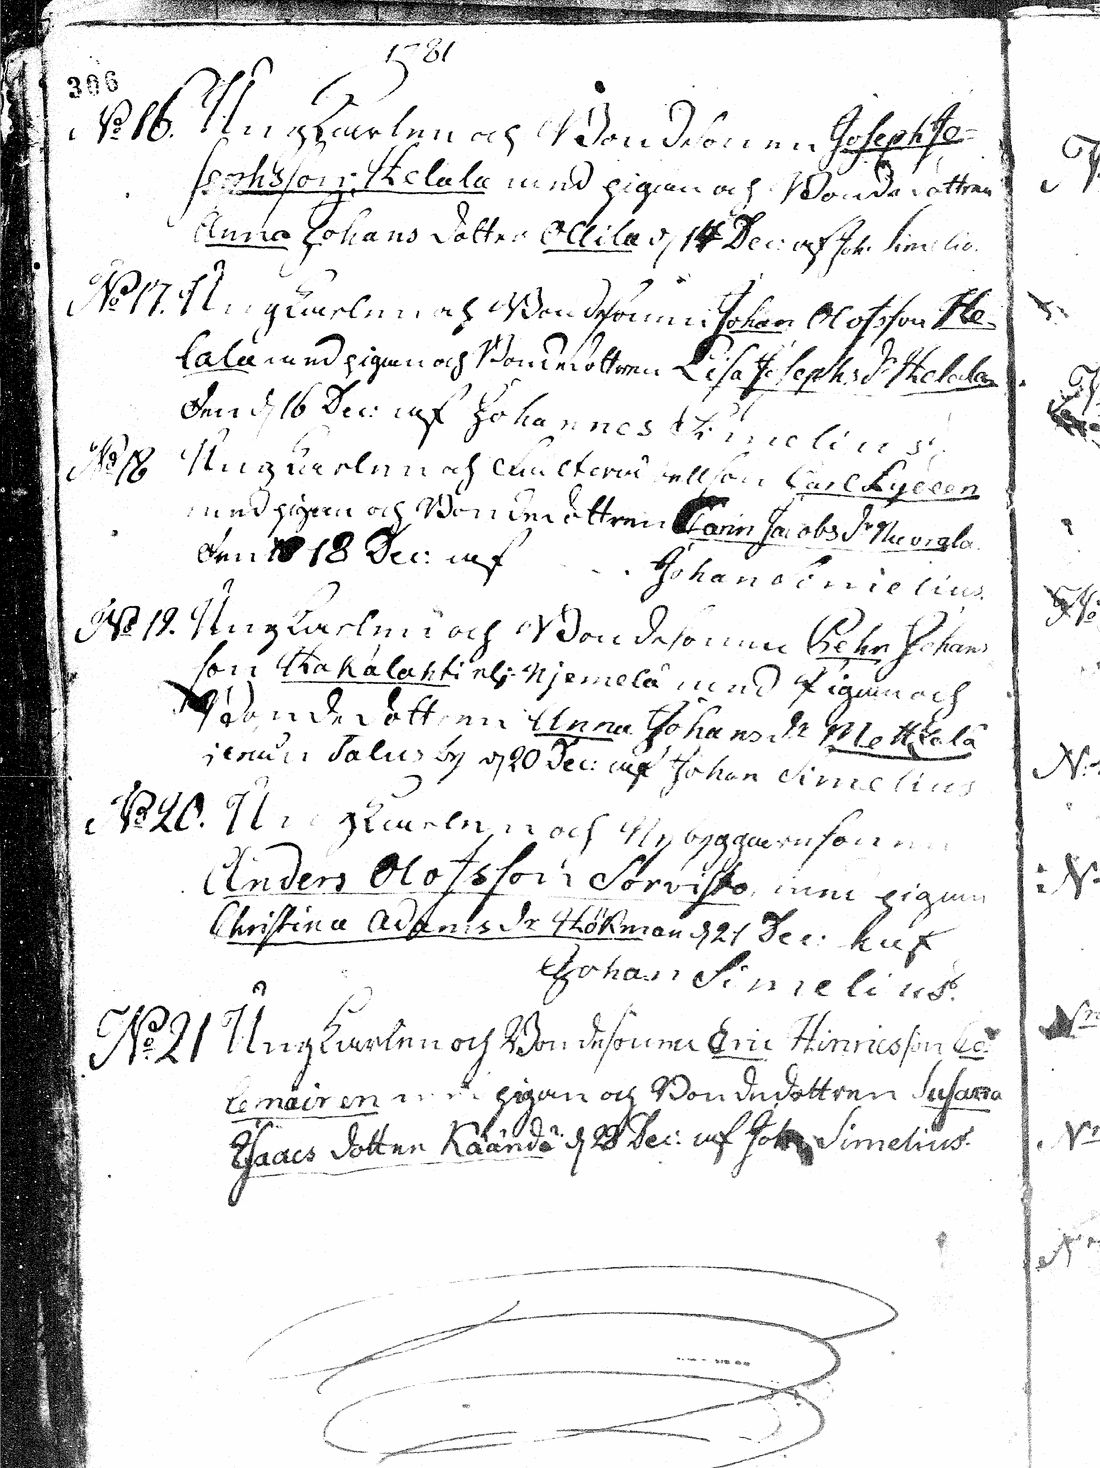 1781
306
No 16. Ungkarlen och Bondesonen Joseph Jo=
sephsson Kelala med pigan och Bondedottren
Anna Johans dotter Ollila d 14 Dec: af Joh. Simelius.
No 17. Ungkarlen och Bondesonen Johan Olofsson Ke-
lala med pigan och Bondedottren Lisa Josephs dr Kelala
den d 16 Dec: af Johannes Simelius.
No 18 Ungkarlen och Carl Lyceen
med pigan och Bondedottren Carin Jacobs dr
den 18 Dec: af Johan Simelius.
No 19. Ungkarlen och Bondesonen Pehr Johans
son Kakalahti elj. Njemelä med Pigan och
Bondedottren Anna Johans dr Mettälä
Talus by d 20 Dec: af Johan Simelius
No 20. Ungkarlen och Nybyggaresonen
Anders Olofsson Sorvisto med pigan
Christina Adams dr Hökman d 21 Dec: af
Johan Simelius.
No 21 Ungkarlen och Bondesonen Eric Hinricsson
med pigan och Bondedottren Susanna
Isaacs dotter Käändä d 28 Dec: af Joh Simelius.